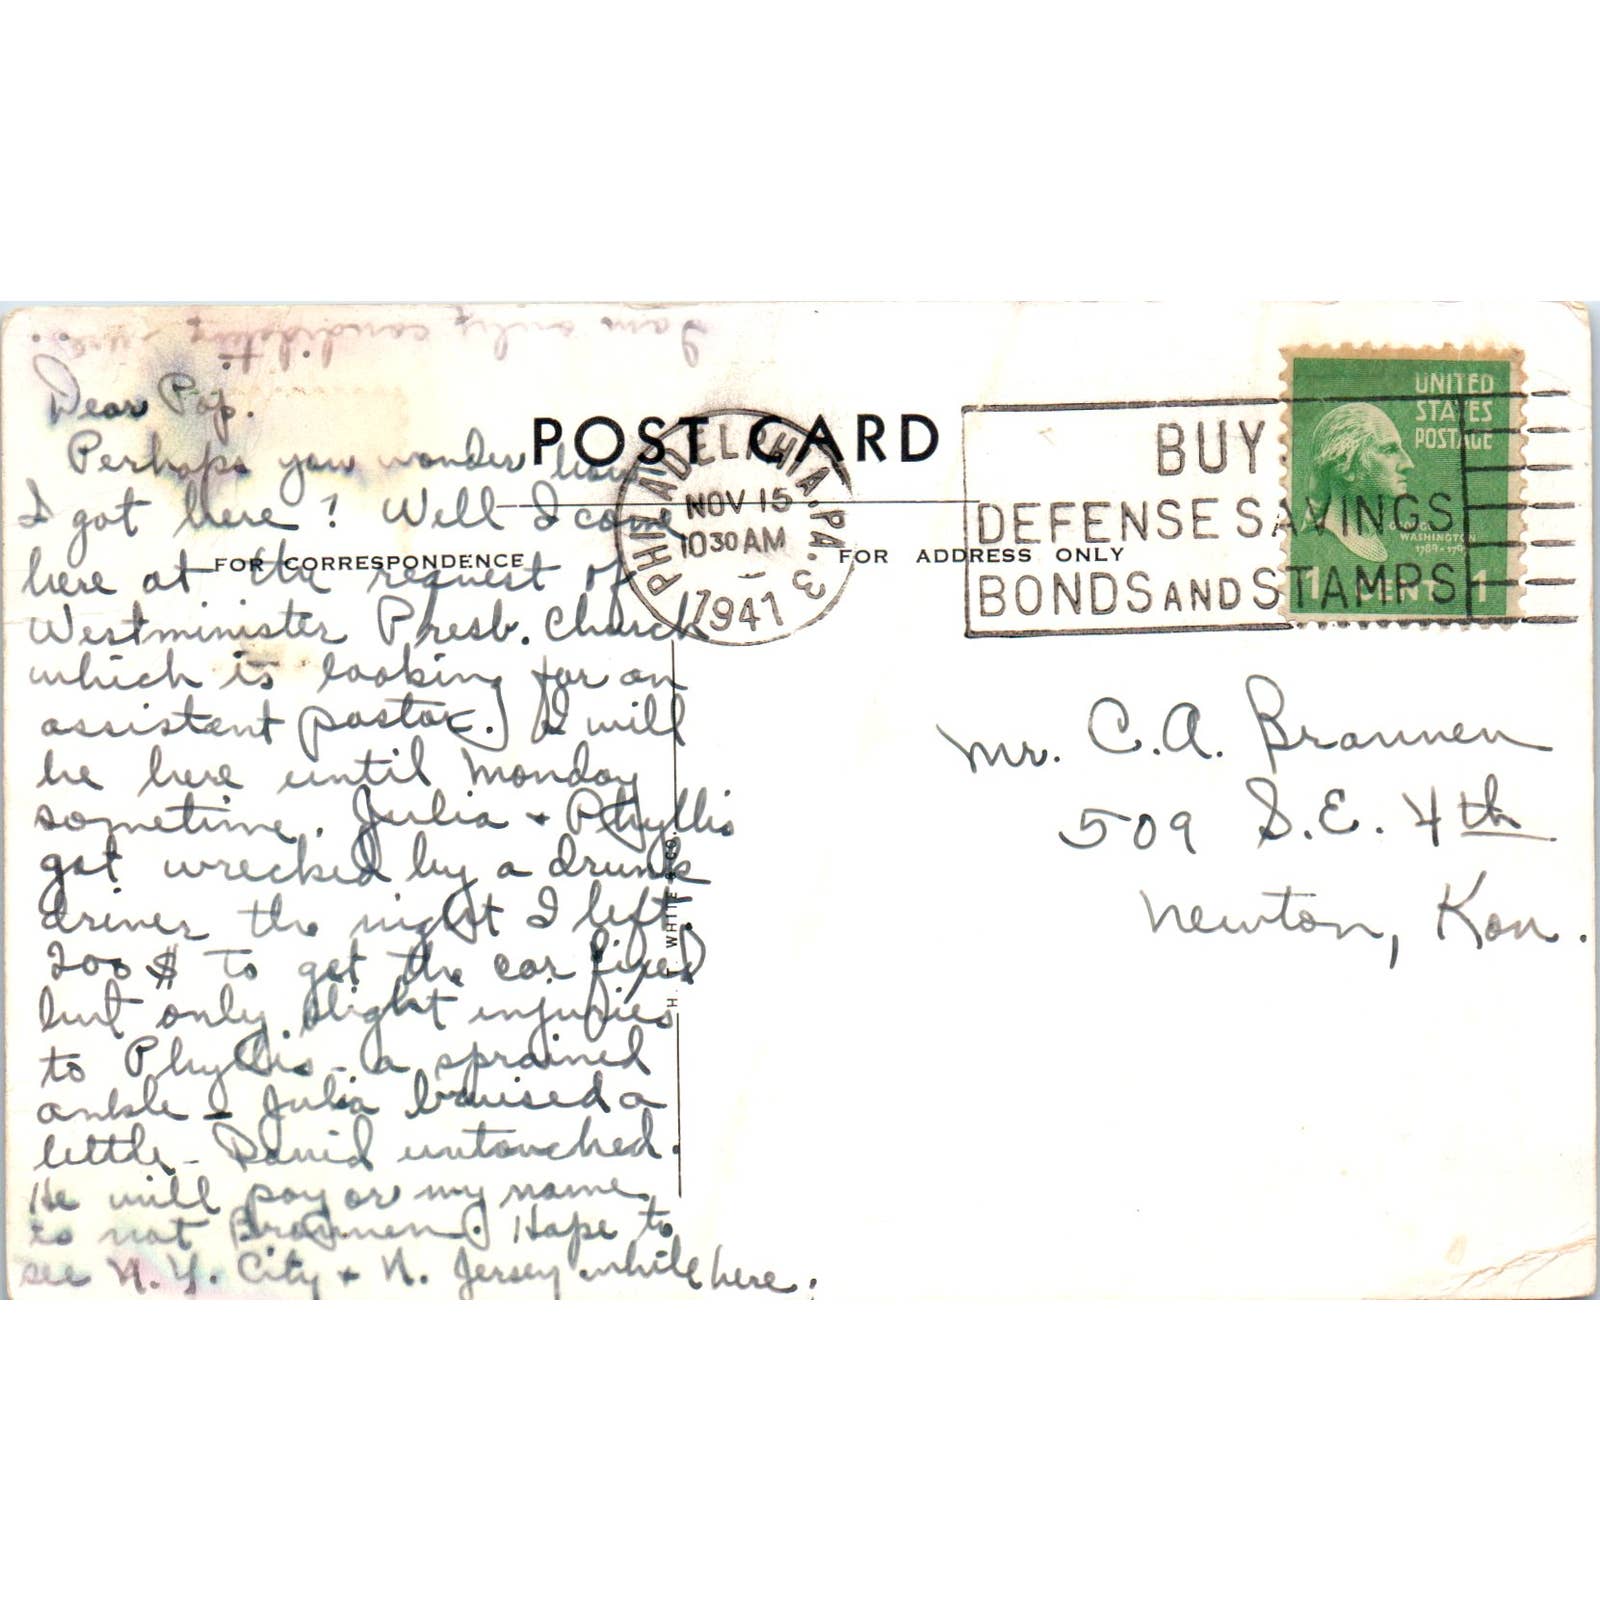 I am only candidate
Dear Pap.
Perhaps you wonder how
I got here? Well I come
here at the request of
Westminister Presb. Church
which is looking for an
assistant pastor. I will
be here until Monday
sometime. Julia + Phyllis
got wrecked by a drunk
driver the night I left
200 $ to get the car fixed
but only slight injuries
to Phyllis - a sprained
ankle - Julia bruised a
little - David untouched.
He will pay or my name
is not Brannen. Hope to
see N.Y. City + N. Jersey while here.
POST CARD
FOR CORRESPONDENCE
FOR ADDRESS ONLY
H. T. WHITE & CO.
PHILADELPHIA, PA. 3
NOV 15
10 30 AM
1941
BUY
DEFENSE SAVINGS
BONDS AND STAMPS
UNITED
STATES
POSTAGE
GEORGE
WASHINGTON
1789-1797
1 CENT 1
Mr. C.A. Brannen
509 S.E. 4th
Newton, Kan.